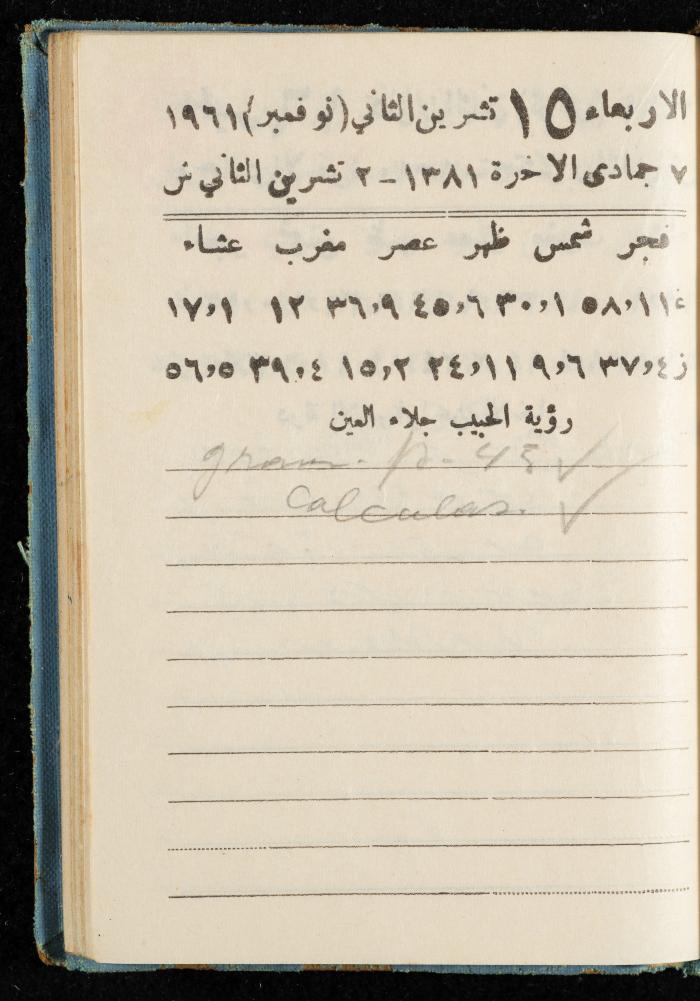 الاربعاء ١٥ تشرين الثاني (نوفمبر) ١٩٦١
٧ جمادى الاخرة ١٣٨١ - ٢ تشرين الثاني ش
فجر شمس ظهر عصر مغرب عشاء
غ ١١,٥٨ ١,٣٠ ٦,٤٥ ٩,٣٦ ١٢ ١,١٧
ز ٤,٣٧ ٦,٩ ١١,٢٤ ٢,١٥ ٤,٣٩ ٥,٥٦
رؤية الحبيب جلاء العين
gram. p. 45 ✓
Calculas. ✓